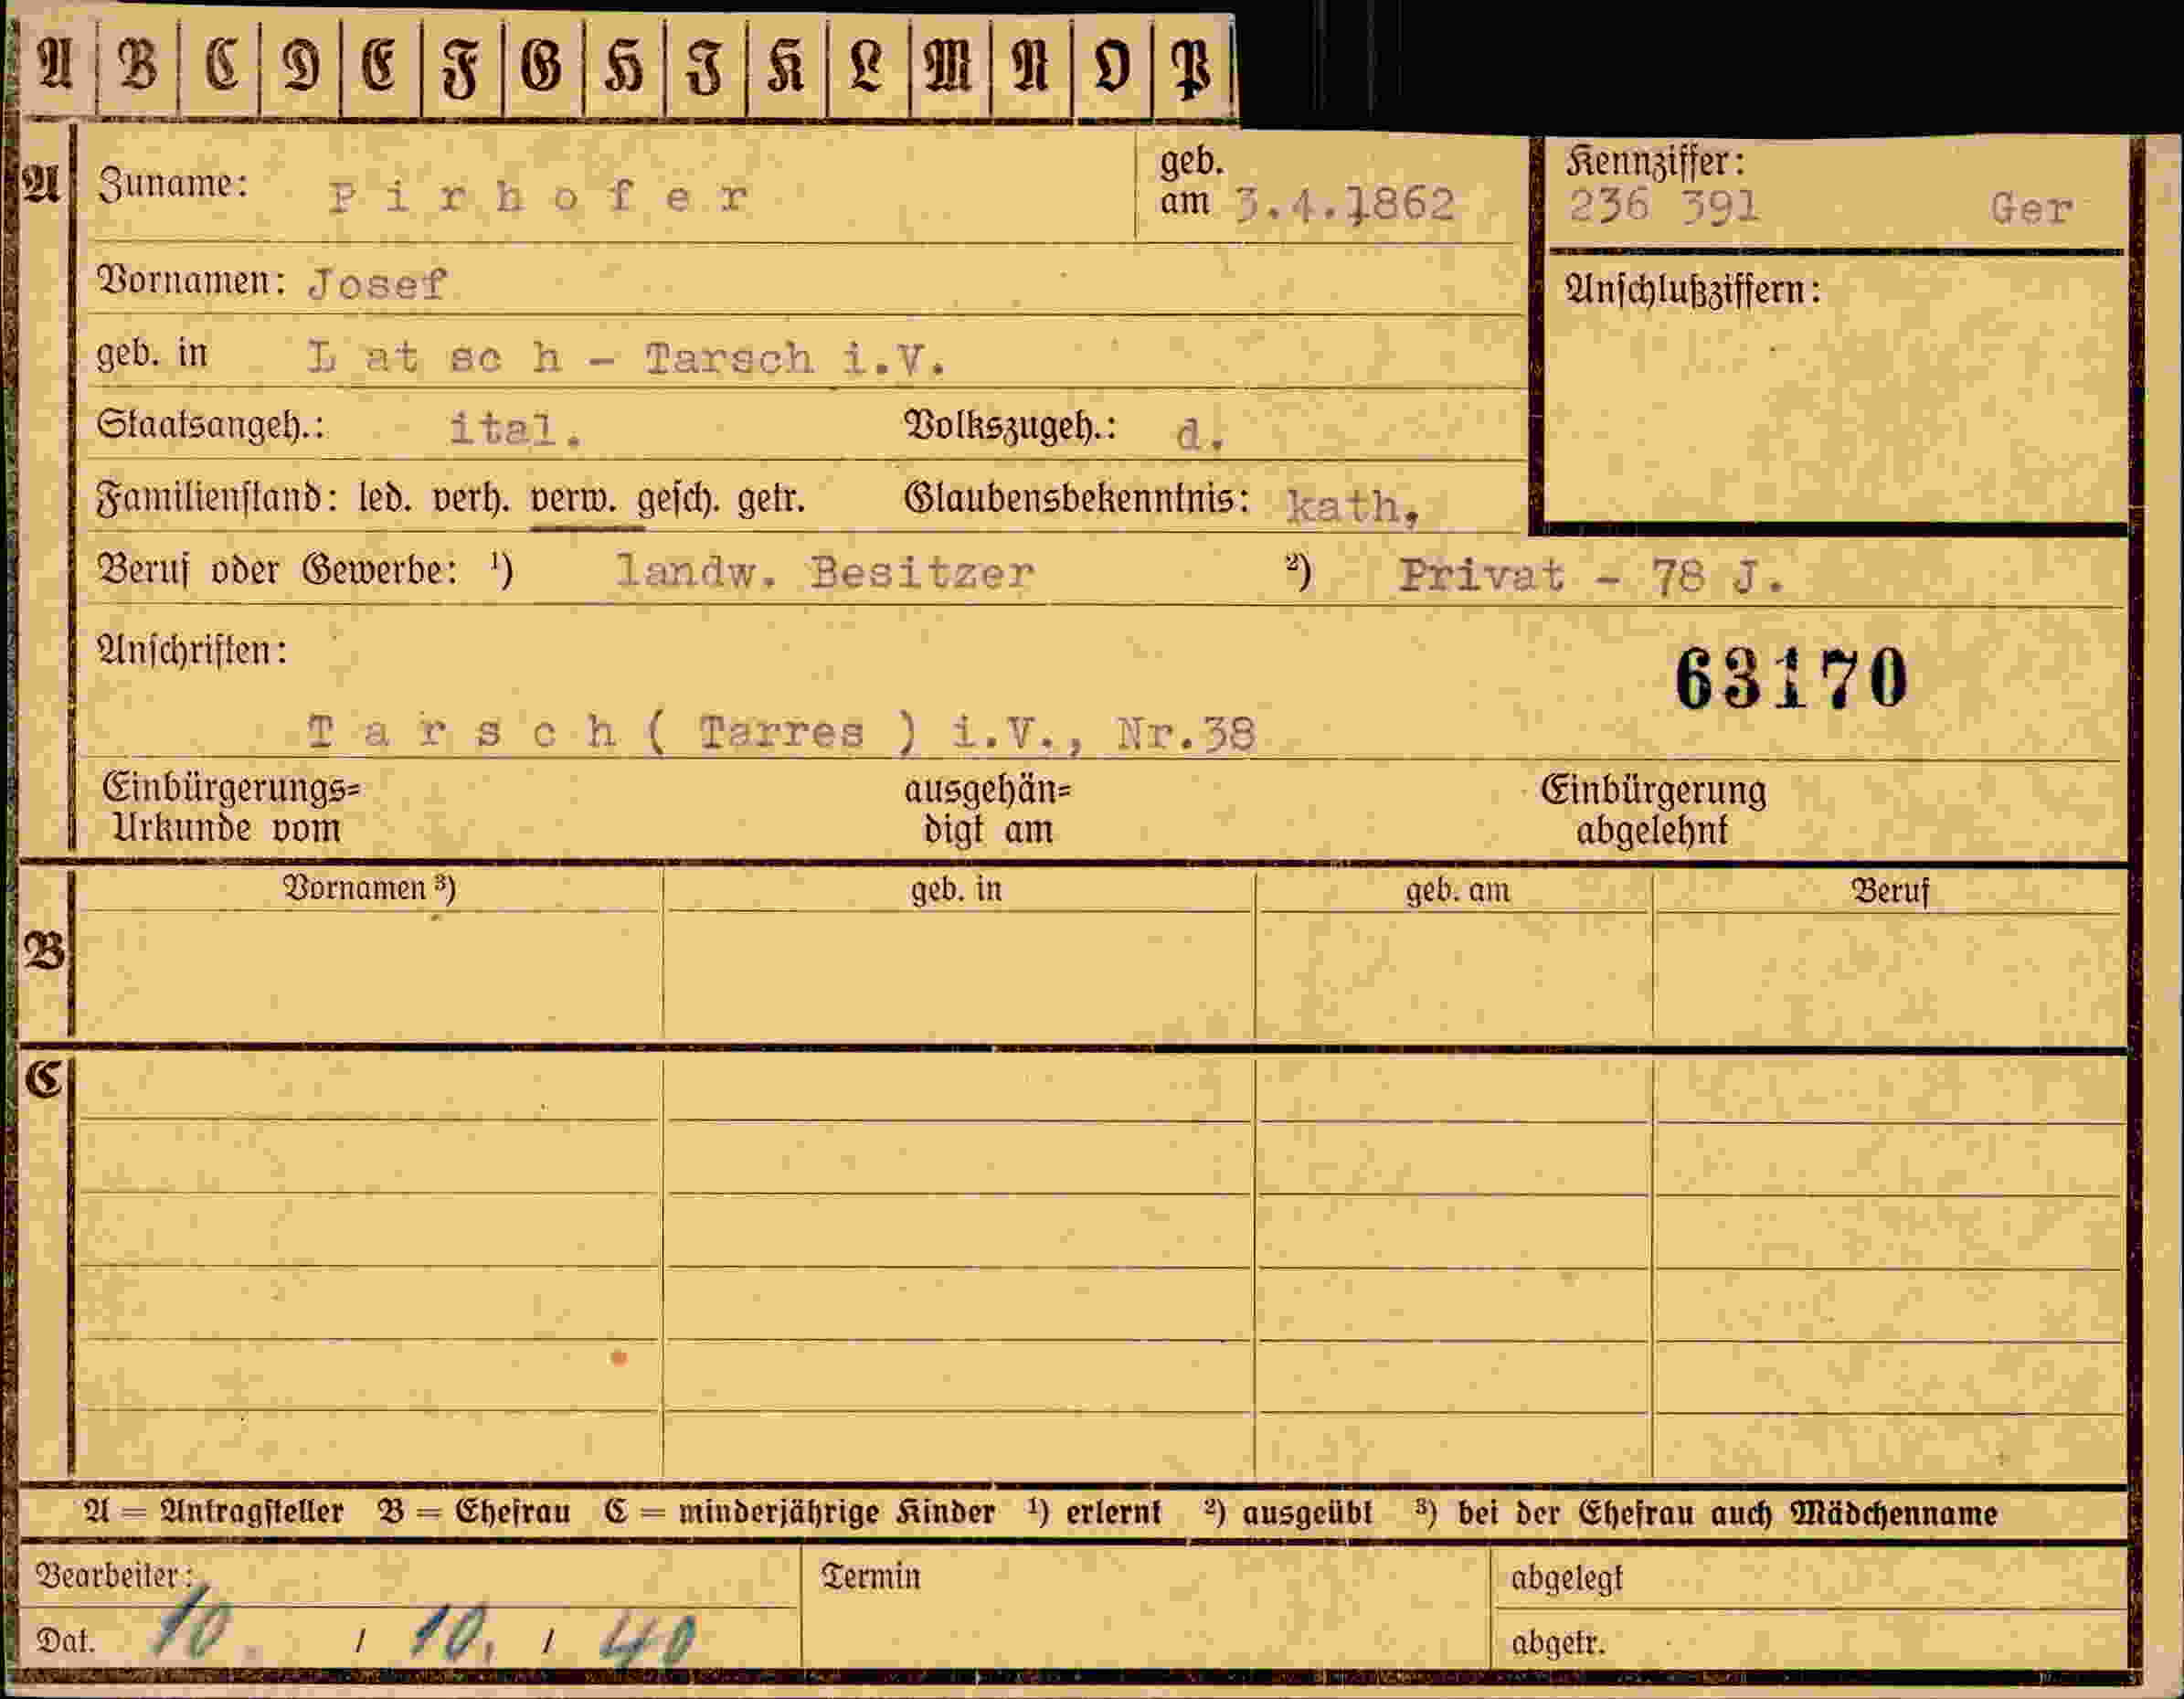 A B C D E F G H I K L M N O P
A Zuname: Pirhofer geb. am 3.4.1862 Kennziffer: 236 391 Ger
Vornamen: Josef Anschlußziffern:
geb. in L at sc h - Tarsch i.V.
Staatsangeh.: ital. Volkszugeh.: d.
Familienstand: led. verh. verw. gesch. getr. Glaubensbekenntnis: kath.
Beruf oder Gewerbe: ¹) landw. Besitzer ²) Privat - 78 J.
Anschriften: 63170
T a r s c h ( Tarres ) i.V., Nr.38
Einbürgerungs= ausgehän= Einbürgerung
Urkunde vom digt am abgelehnt
Vornamen ³) geb. in geb. am Beruf
B
C
A = Antragsteller B = Ehefrau C = minderjährige Kinder ¹) erlernt ²) ausgeübt ³) bei der Ehefrau auch Mädchenname
Bearbeiter: Termin abgelegt
Dat. 10. / 10. / 40 abgetr.